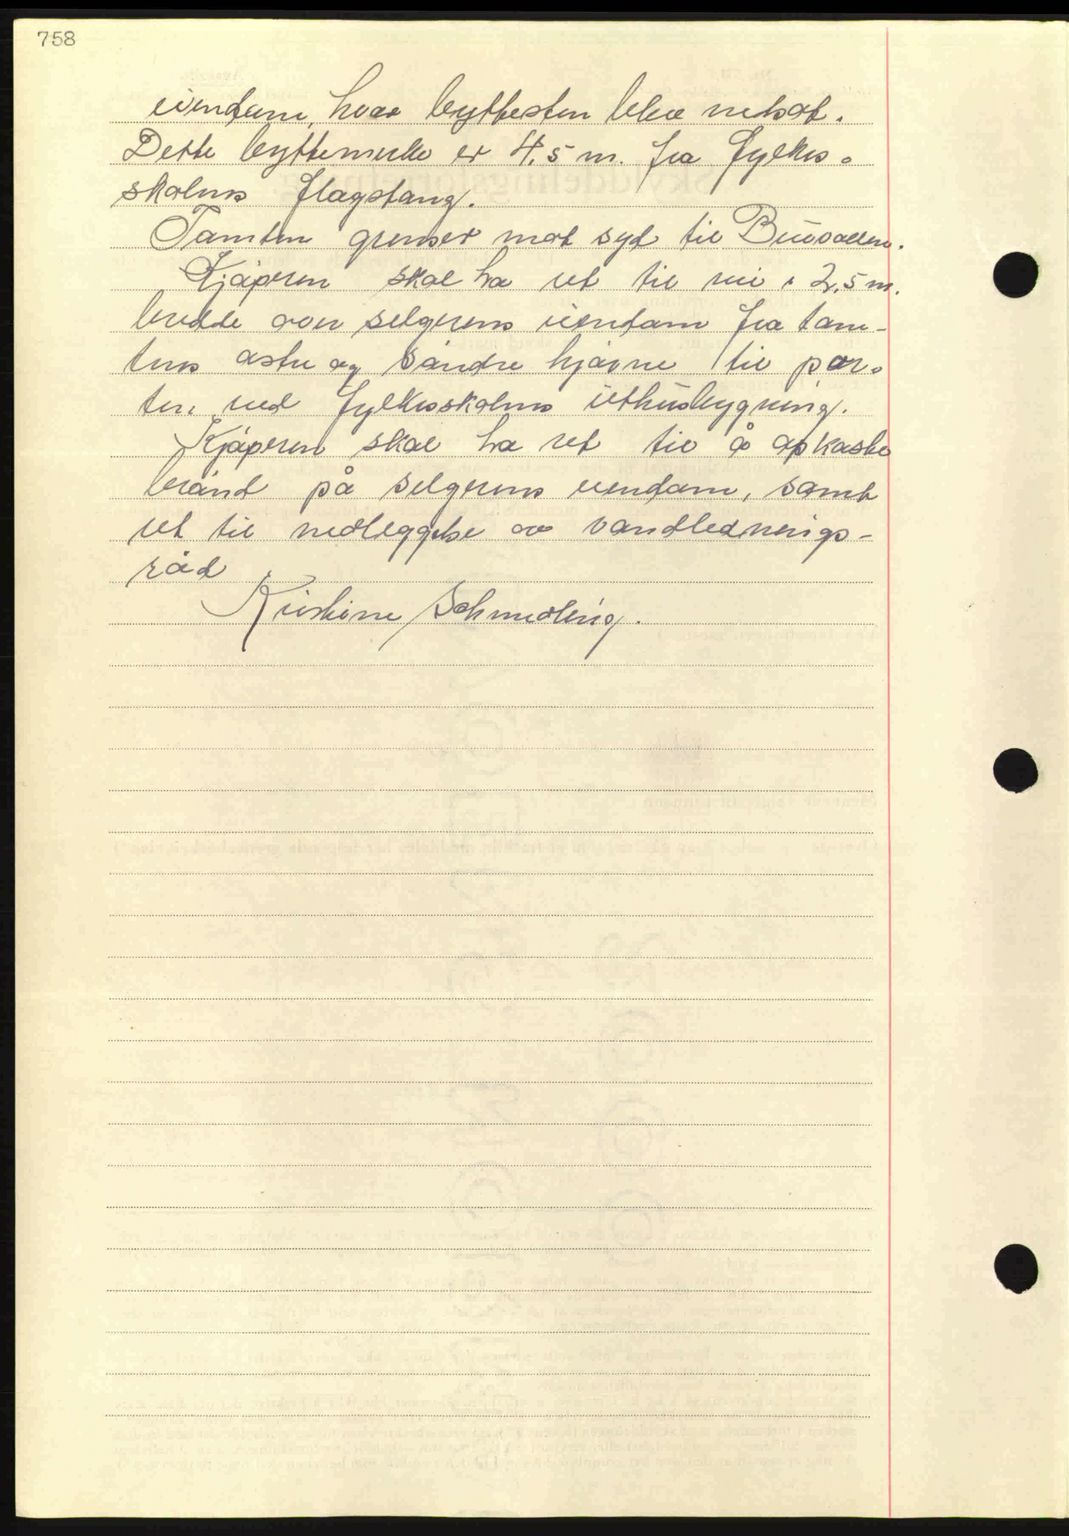 758
eiendom, hvor byttesten blev nedsat.
Dette byttemerke er 4,5 m. fra fylkes-
skolens flagstang.
Tomten grenser mot syd til Buvollen.
Kjøperen skal ha ret til vei i 2,5 m.
bredde over selgerens eiendom fra tom-
tens østre og søndre hjørne til por-
ten ved fylkesskolens uthusbygning.
Kjøperen skal ha ret til å opkaste
brønd på selgerens eiendom, samt
ret til nedleggelse av vandlednings-
rør
Kristine Schmedling.